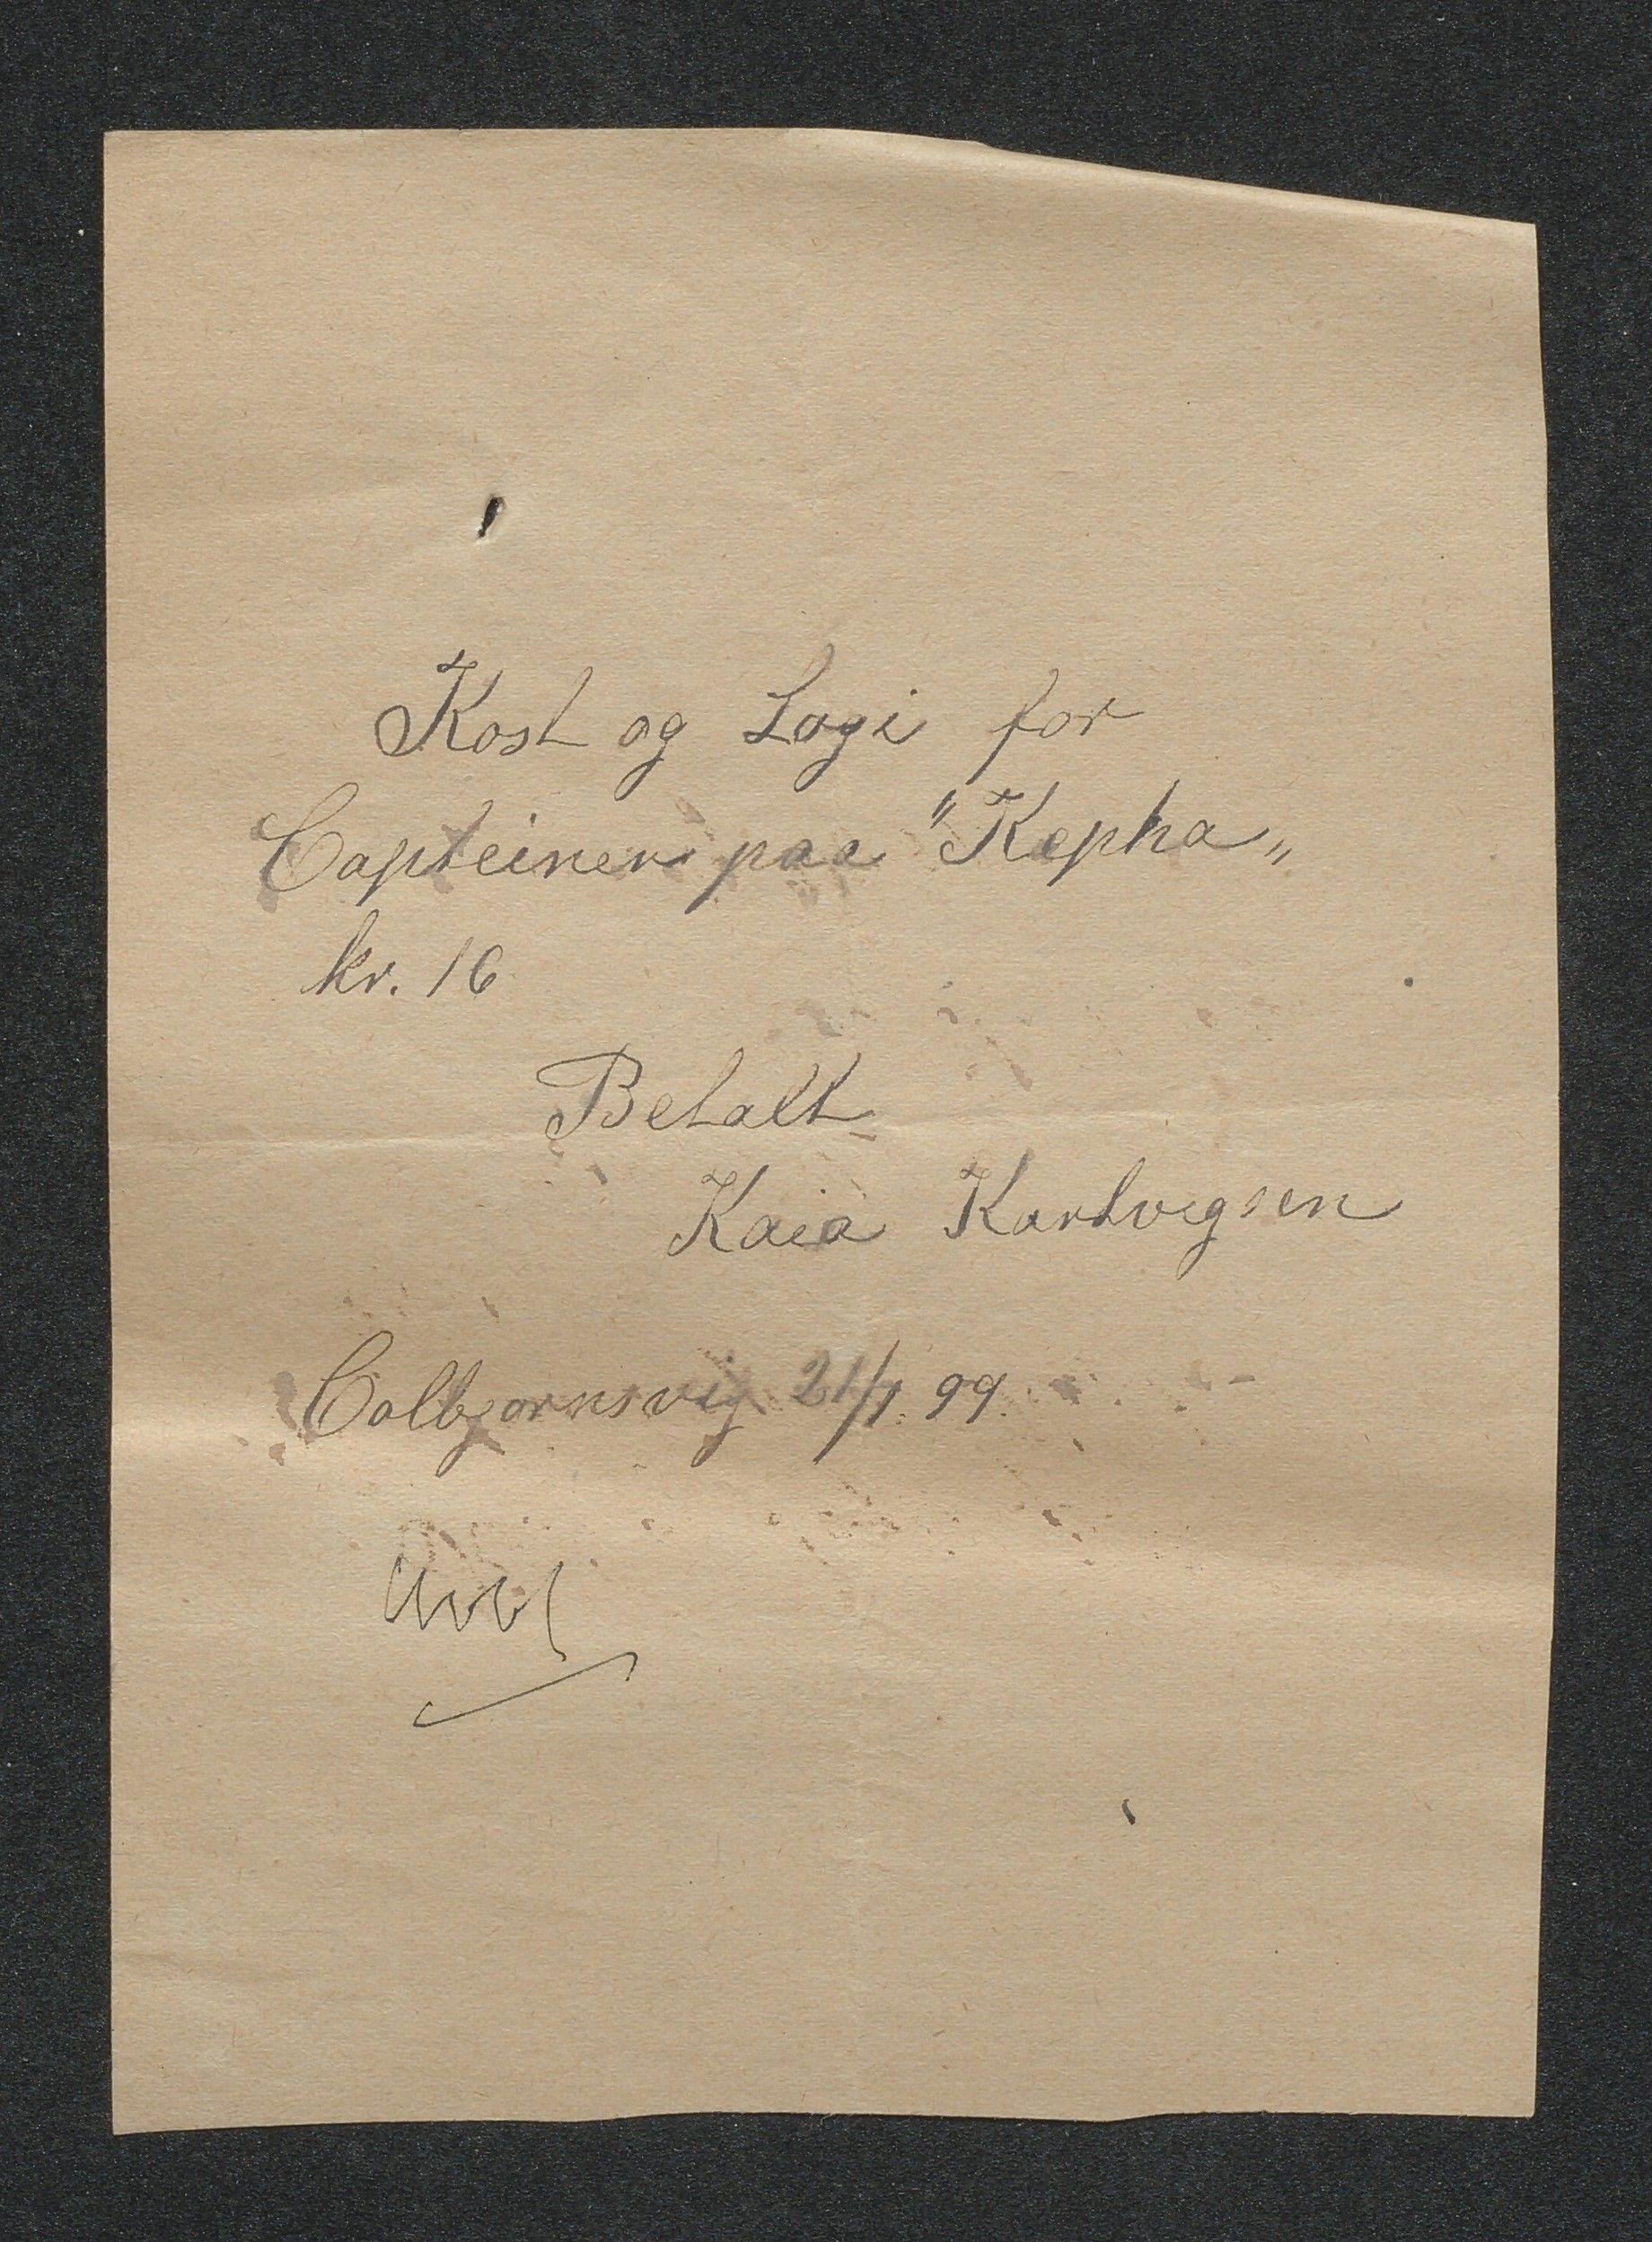 Kost og Logi for
Capteinen paa "Kepha„
kr. 16
Betalt
Kaia Kartvegsen
Colbjørnsvig 21/1 99.